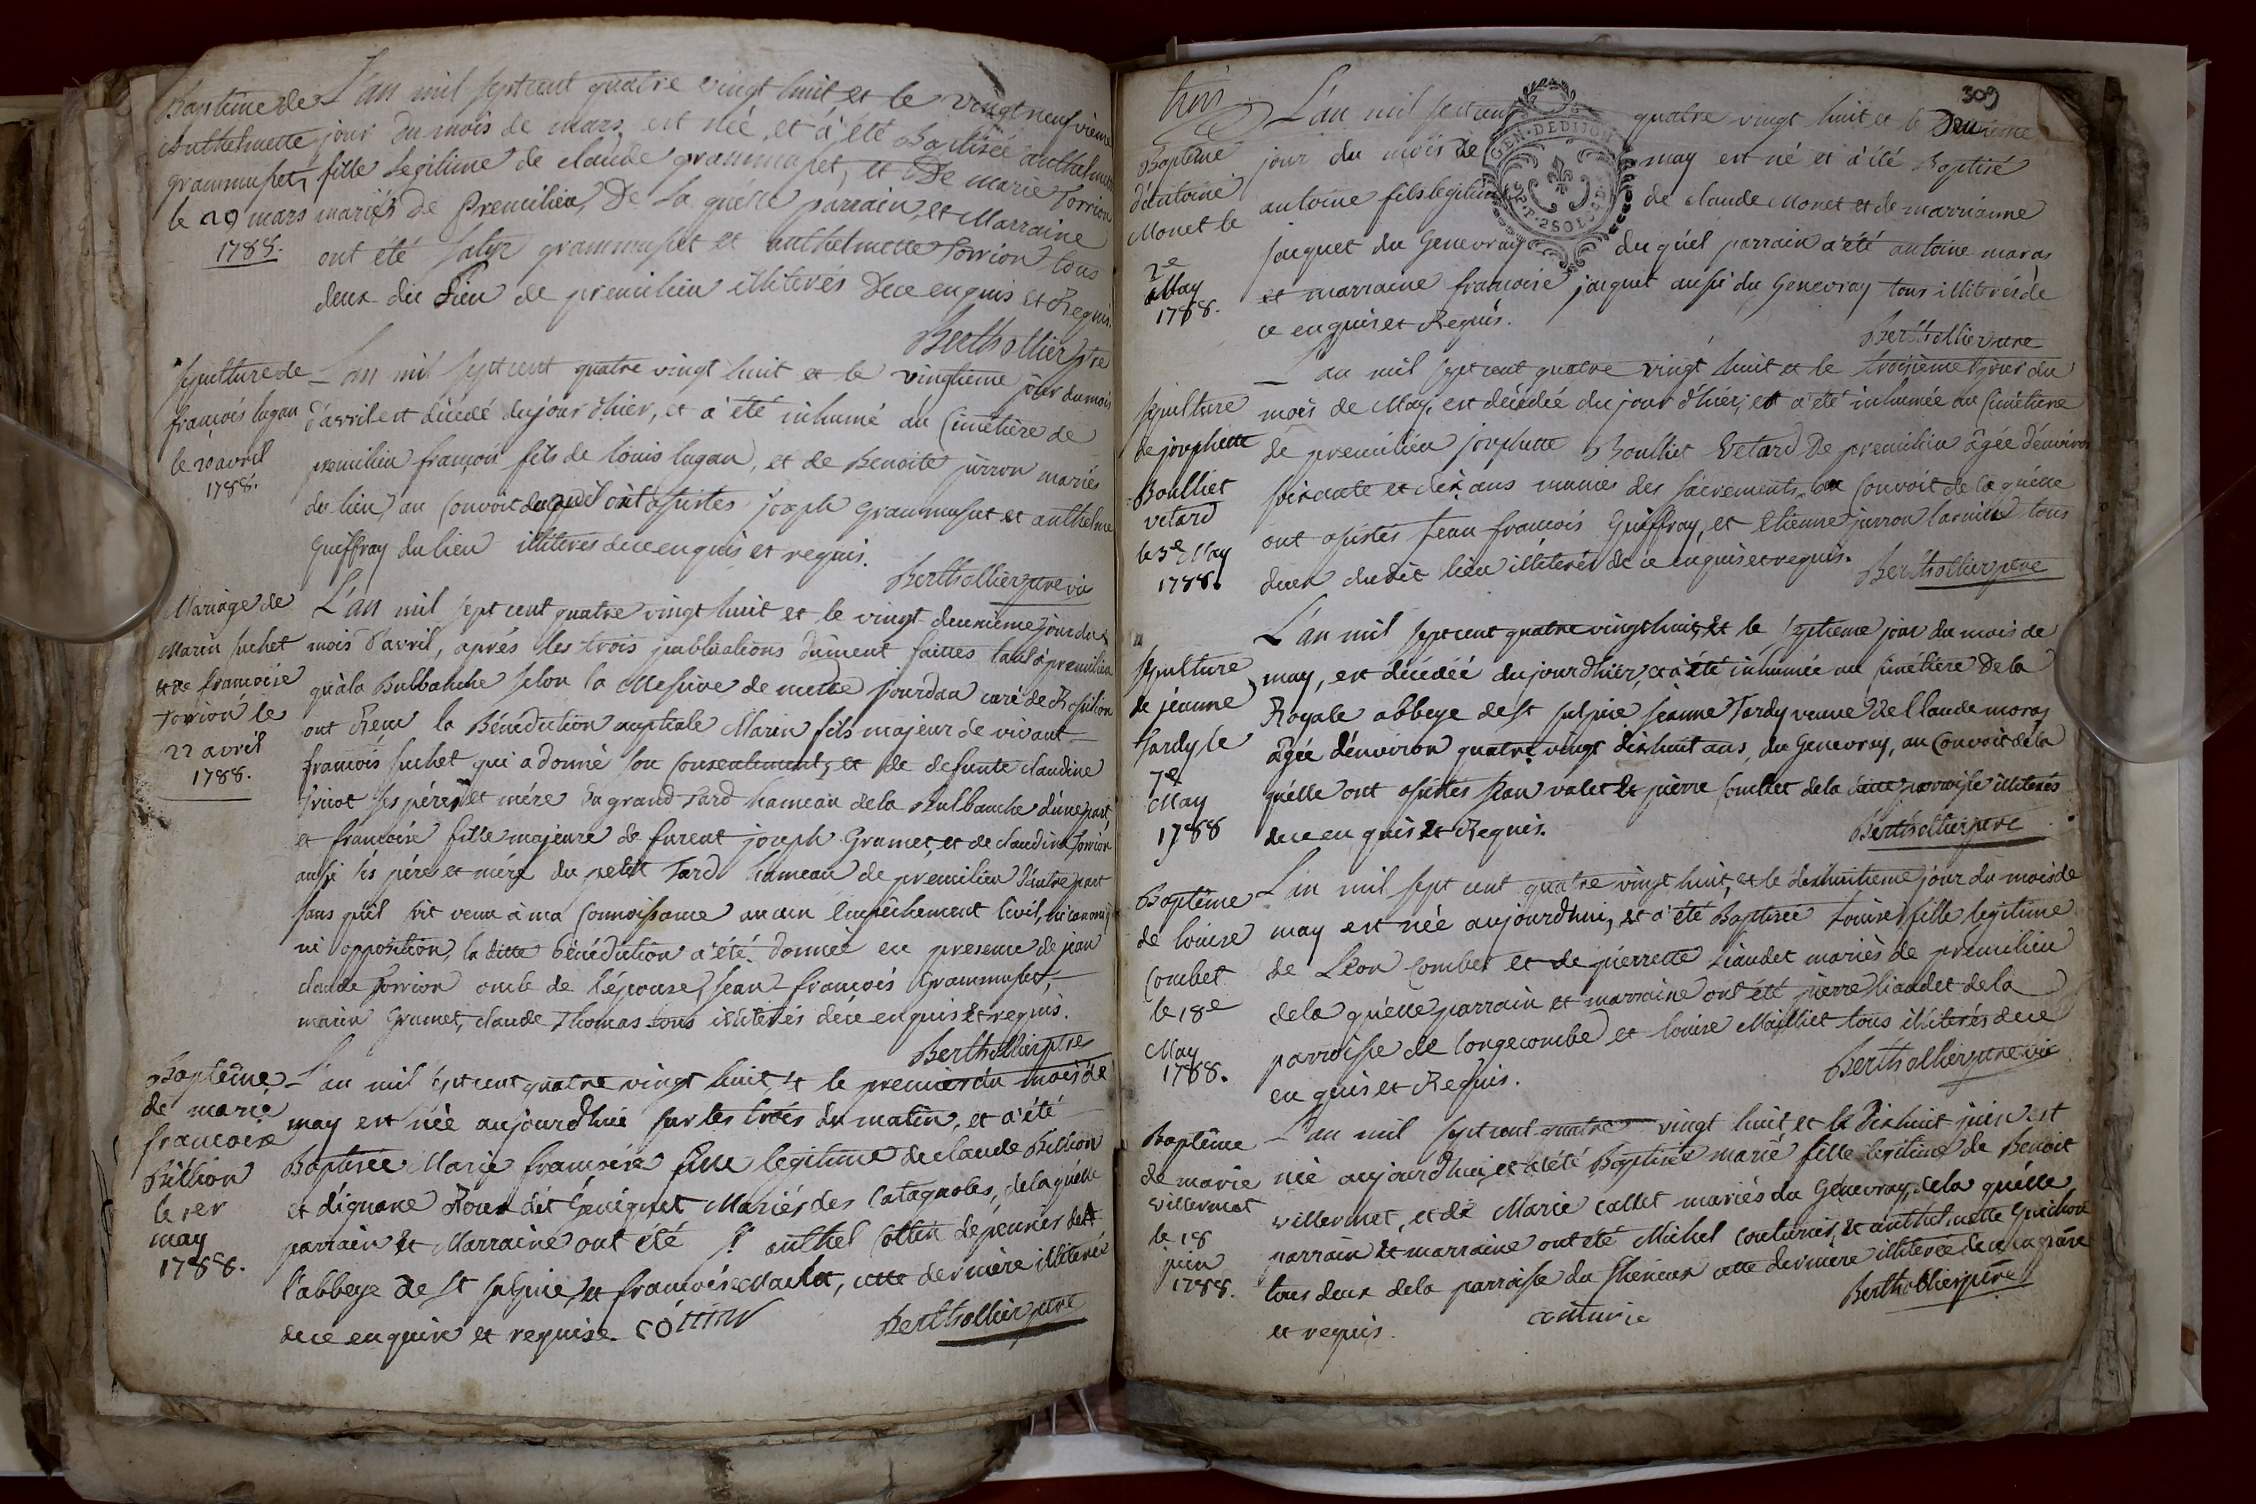 Baptême de
Anthelmette
grammuset,
le 29 mars
1788.
L'an mil sept cent quatre vingt huit et le vingt neuf vieme
jour du mois de mars, est née, et à été Baptisée anthelmette
fille legitime de claude grammuset, et De marie Torrion
mariés de Premilieu, De la quelle parrain, et Marraine
ont été grammuset et anthelmette Torrion tous
deux du Lieu de premilieu illiterés Dece enquis et Requis.
Berthollier ptre
sepulture de
françois lugan
le 20 avril
1788.
L'an mil sept cent quatre vingt huit et le vingtieme jour du mois
d'avril est décédé du jour d'hier, et à été inhumé au Cimetière de
premilieu françois fils de louis lugan, et de Benoite jurron mariés
du lieu au Convoit duquel ont assistés joseph Grammuset et anthelme
Guiffray du lieu illiterés de ce enquis et requis.
Berthollier ptre vic
Mariage de
Marin suchet
et de francoise
Torrion le
22 avril
1788.
L'an mil sept cent quatre vingt huit et le vingt deuxieme jour du
mois d'avril, aprés les trois publications dument faittes tant à premilieu
qu'à la Bulbanche selon la de Jourdan curé de Rossilion
ont Recu la Bénédiction nuptiale Marin fils majeur de vivant
francois suchet qui a donné son Consentement, et de defunte claudine
tricot ses pére et mére du grand Tard hameau de la Bulbanche d'une part,
et francoise fille majeure de furent joseph Gramet, et de claudine Torrion
aussi ses pére et mére du petit Tard hameau de premilieu d'autre part
sans qu'il soit venu à ma Connoissance aucun Empêchement Civil, ni canoniq
ni opposition, la ditte bénédiction a été donnée en presence de jean
claude Torrion oncle de l'épouse, jean françois Grammuset,
marin Gramet, claude Thomas tous illiterés de ce enquis et requis.
Berthollier ptre
Baptême
de marie
francoise
Billion
le 1er
may
1788.
L'an mil sept cent quatre vingt huit et le premier du mois de
may est née aujourdhui sur les trois du matin, et a été
Baptisée Marie francoise fille legitime de claude Billion
et dignane Roux dit Généguet Mariés des Catagnoles, de la quelle
parrain et Marraine ont été Sr anthel Cottin dépencier de
l'abbeye de St sulpice, et francoise Maclet, cette derniére illiterée
de ce enquise et requise cottin
Berthollier ptre
trois
309
GEN. DE DIJON
2 SOLS
Baptême
d'antoine
Monet le
2e
May
1788.
L'an mil sept cent quatre vingt huit et le Deuxieme
jour du mois de may est né et à été Baptisé
antoine fils legitime de claude Monet et de marrianne
jacquet du Genevray duquel parrain a été antoine maras
et marraine francoise jacquet aussi du Genevray tous illiterés de
ce enquis et Requis.
Berthollier ptre
sepulture
de josephette
Boulliet
vetard
le 3e May
1788.
L'an mil sept cent quatre vingt huit et le troisieme jour du
mois de May, est décédée du jour d'hier, et a été inhumée au Cimetiere
de premilieu josephette Boulliet Vetard De premilieu âgée d'environ
soixante et dix ans munies des sacrements, au Convoit de la quelle
ont assistés jean francois Guiffray, et Etienne jurron tous
deux dudit lieu illiterés de ce enquis et requis.
Berthollier ptre
sepulture
de jeanne
Tardy le
7e
May
1788
L'an mil sept cent quatre vingt huit et le septieme jour du mois de
may, est décédée du jour d'hier, et a été inhumée au Cimétiere De la
Royale abbeye de St sulpice jeanne Tardy veuve De Claude moras
âgée d'environ quatre vingt dix huit ans, du Genevray, au Convoit de la
quelle ont assistés jean valet et pierre Combet de la ditte parroisse illiterés
de ce enquis et Requis.
Berthollier ptre
Baptême
de louise
Combet
le 18e
May
1788.
L'an mil sept cent quatre vingt huit, et le dixhuitieme jour du mois de
may est née aujourd'hui, et a été Baptisée Louise fille legitime
de Léon Combet et de pierrette Liaudet mariés de premilieu
de la quelle parrain et marraine ont été pierre liaudet de la
parroisse de longecombe et louise Mailliet tous illiterés de ce
enquis et Requis.
Berthollier ptre vic
Baptême
de marie
villermet
le 18
juin
1788.
L'an mil sept cent quatre vingt huit et le Dixhuit juin est
née aujourdhui, et a été Baptisée marie fille legitime de Benoit
villermet, et de Marie callet mariés du Genevray, de la quelle
parrain et marraine ont été Michel couturier, et anthelmette Guichon
tous deux de la parroisse du cette derniere illiterée de ce enquise
et requis.
couturie
Berthollier ptre